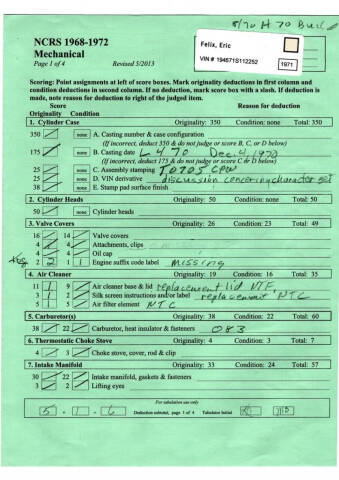 8/70 H 70 Build
NCRS 1968-1972
Mechanical
Page 1 of 4 Revised 5/2013
Felix, Eric
VIN # 194671S112252
1971
Scoring: Point assignments at left of score boxes. Mark original deductions in first column and
condition deductions in second column. If no deduction, mark score box with a slash. If deduction is
made, note reason for deduction to right of the judged item.
Score Reason for deduction
Originality Condition
1. Cylinder Case Originality: 350 Condition: none Total: 350
350 none A. Casting number & case configuration
(If incorrect, deduct 350 & do not judge or score B, C, or D below)
175 none B. Casting date L 4 70 Dec. 4, 1970
(If incorrect, deduct 175 & do not judge or score C or D below)
25 none C. Assembly stamping T0705 CPW
25 none D. VIN derivative discussion concering character set
38 none E. Stamp pad surface finish
2. Cylinder Heads Originality: 50 Condition: none Total: 50
50 none Cylinder heads
3. Valve Covers Originality: 26 Condition: 23 Total: 49
16 14 Valve covers
4 4 Attachments, clips
4 4 Oil cap
2 2 1 1 Engine suffix code label missing
4. Air Cleaner Originality: 19 Condition: 16 Total: 35
11 1 9 Air cleaner base & lid replacement lid NTF,
3 1 2 Silk screen instructions and/or label replacement NTC
5 1 5 Air filter element NTC
5. Carburetor(s) Originality: 38 Condition: 22 Total: 60
38 22 Carburetor, heat insulator & fasteners 083
6. Thermostatic Choke Stove Originality: 4 Condition: 3 Total: 7
4 3 Choke stove, cover, rod & clip
7. Intake Manifold Originality: 33 Condition: 24 Total: 57
30 22 Intake manifold, gaskets & fasteners
3 2 Lifting eyes
For tabulation use only
5 1 6 Deduction subtotal, page 1 of 4 Tabulator Initial